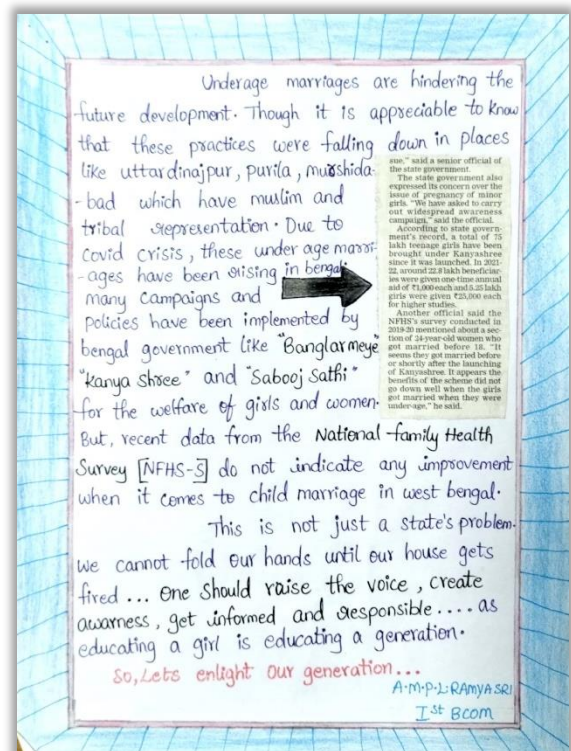 Underage marriages are hindering the
future development. Though it is appreciable to know
that these practices were falling down in places
like uttardinajpur, purila, murshida-
-bad which have muslim and
tribal representation. Due to
covid crisis, these under age marri-
-ages have been rising in bengal.
many campaigns and
policies have been implemented by
bengal government like "Banglarmeye"
"Kanya Shree" and "Sabooj Sathi"
for the welfare of girls and women.
But, recent data from the National family Health
Survey [NFHS-5] do not indicate any improvement
when it comes to child marriage in west bengal.
This is not just a state's problem.
we cannot fold our hands until our house gets
fired ... One should raise the voice, create
awarness, get informed and responsible .... as
educating a girl is educating a generation.
So, Lets enlight our generation...
A.M.P.L. RAMYA SRI
Ist BCOM
sue," said a senior official of
the state government.
The state government also
expressed its concern over the
issue of pregnancy of minor
girls. "We have asked to carry
out widespread awareness
campaign," said the official.
According to state govern-
ment's record, a total of 75
lakh teenage girls have been
brought under Kanyashree
since it was launched. In 2021-
22, around 22.8 lakh beneficiar-
ies were given one-time annual
aid of ₹1,000 each and 5.25 lakh
girls were given ₹25,000 each
for higher studies.
Another official said the
NFHS's survey conducted in
2019-20 mentioned about a sec-
tion of 24-year-old women who
got married before 18. "It
seems they got married before
or shortly after the launching
of Kanyashree. It appears the
benefits of the scheme did not
go down well when the girls
got married when they were
under-age," he said.